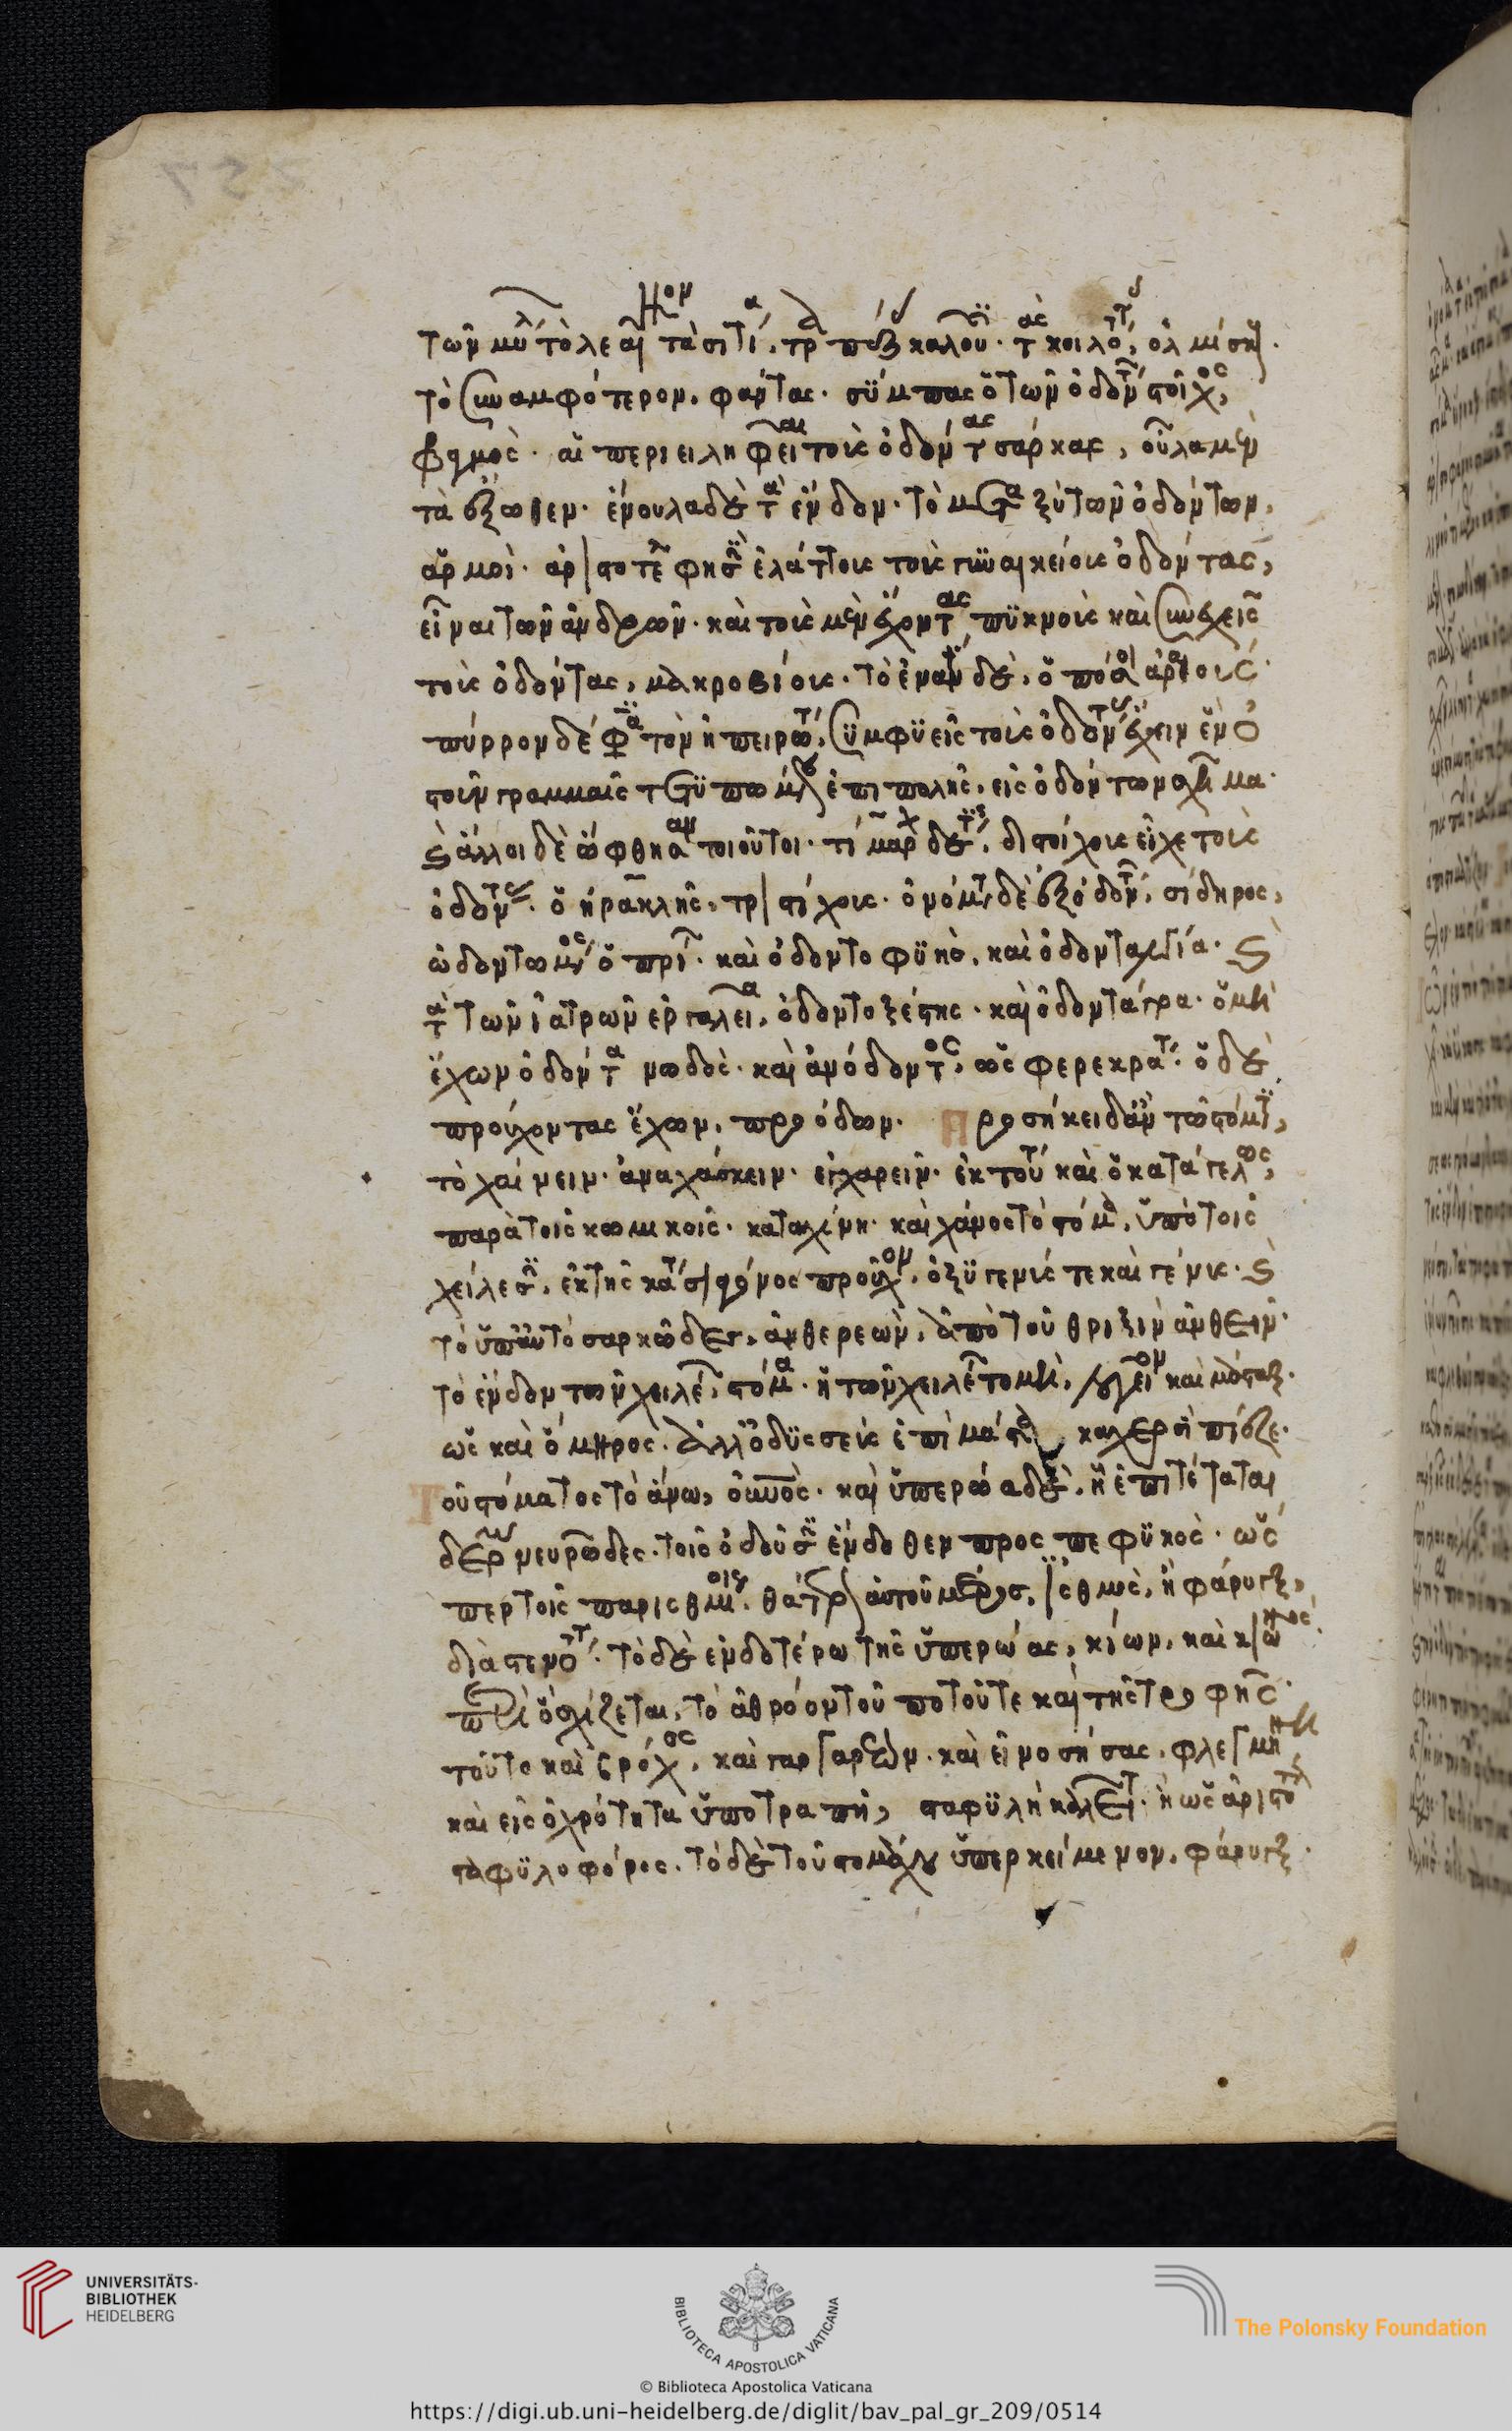 τῶν τὸ λεαῖνον τὰ σιτία, καλοῦσι· τὰς κοιλότητας,
τὸ συναμφότερον, φάντας· σύμπας ὁ τῶν ὀδόντων στοῖχος,
αἱ τοὺς ὀδόντας σάρκας, οὖλα μὲν
τὰ ἔξωθεν· ἔνουλα δὲ τὰ ἔνδον· τὸ μεταξὺ τῶν ὀδόντων,
ἁρμοί· ἀριστοτέλης φησὶν ἐλάττους τοὺς γυναικείους ὀδόντας,
εἶναι τῶν ἀνδρῶν· καὶ τοὺς μὲν ἔχοντας πυκνοὺς καὶ συνεχεῖς
τοὺς ὀδόντας, μακροβίους· τὸ ἐναντίον δὲ, ὁπόσοι
πύρρον δέ τὸν ἠπειρώτην, συμφυεῖς τοὺς ὀδόντας ἔχειν ἐν
γραμμαῖς τετυπωμένους ἐπιπολῆς, εἰς ὀδόντων σχῆμα·
καὶ ἄλλοι δὲ ὤφθησαν τοιοῦτοι· τίμαρχος δὲ διστοίχους εἶχε τοὺς
ὀδόντας· ὁ ἡρακλῆς, τριστίχους· ὀνόματα δὲ ἐξ ὀδόντων, σίδηρος,
ὠδοντωμένος ὁ πρίων· καὶ καὶ
τὰ τῶν ἰατρῶν ἐργαλεῖα, ὀδοντοξέστης· καὶ ὀδοντάγρα· ὁ μὴ
ἔχων ὀδόντα νωδὸς· καὶ ἀνόδοντος, ὡς φερεκράτης· ὁ δὲ
προύχοντας ἔχων, προόδων. Προσήκει δ' ἂν τῷ στόματι,
τὸ χαίνειν· ἀναχάσκειν· ἐγχανεῖν· ἐκ τούτου καὶ ὁ κατάγελως,
παρὰ τοῖς κωμικοῖς· καταχήνη· καὶ χάνος τὸ στόμα, ὑπὸ τοῖς
χείλεσιν, ἐκ τῆς προῦχον, τε καὶ γένυς· καὶ
τὸ ὑπ' αὐτὸ σαρκῶδες, ἀνθερεὼν, ἀπὸ τοῦ θριξὶν ἀνθεῖν·
τὸ ἔνδον τῶν χειλέων, στόμα· ἡ τῶν χειλέων τομὴ, καὶ μάσταξ·
ὡς καὶ ὅμηρος· ἀλλ' ὀδυσεὺς ἐπὶ μάστακα χερσὶ πίεζε·
Τοῦ στόματος τὸ ἄνω, οὐρανὸς· καὶ ὑπερώα δὲ, ἣ ἐπιτέταται
δέρμα νευρῶδες· τοῖς ὀδοῦσιν ἔνδοθεν προσπεφυκὸς· ὥσ
περ τοῖς παρισθμίοις· θάτερον αὐτοῦ μέρος, ἰσθμὸς, ἢ φάρυγξ,
διὰ στενότητα· τὸ δὲ ἐνδοτέρω τῆς ὑπερώας, κίων, καὶ
περὶ ὃ σχίζεται, τὸ ἀθρόον τοῦ ποτοῦ τε καὶ τῆς τροφῆς·
τοῦτο καὶ βρόχος, καὶ γαργαρεών· καὶ εἰ νοσήσας, φλεγμήνῃ
καὶ εἰς ὀχρότητα ὑποτραπῇ, σταφυλὴ καλεῖται· ἢ ὡς ἀριστοτέλης
σταφυλοφόρος· τὸ δὲ τοῦ στομάχου ὑπερκείμενον, φάρυγξ·
UNIVERSITÄTS-
BIBLIOTHEK
HEIDELBERG
BIBLIOTECA APOSTOLICA VATICANA
The Polonsky Foundation
© Biblioteca Apostolica Vaticana
https://digi.ub.uni-heidelberg.de/diglit/bav_pal_gr_209/0514